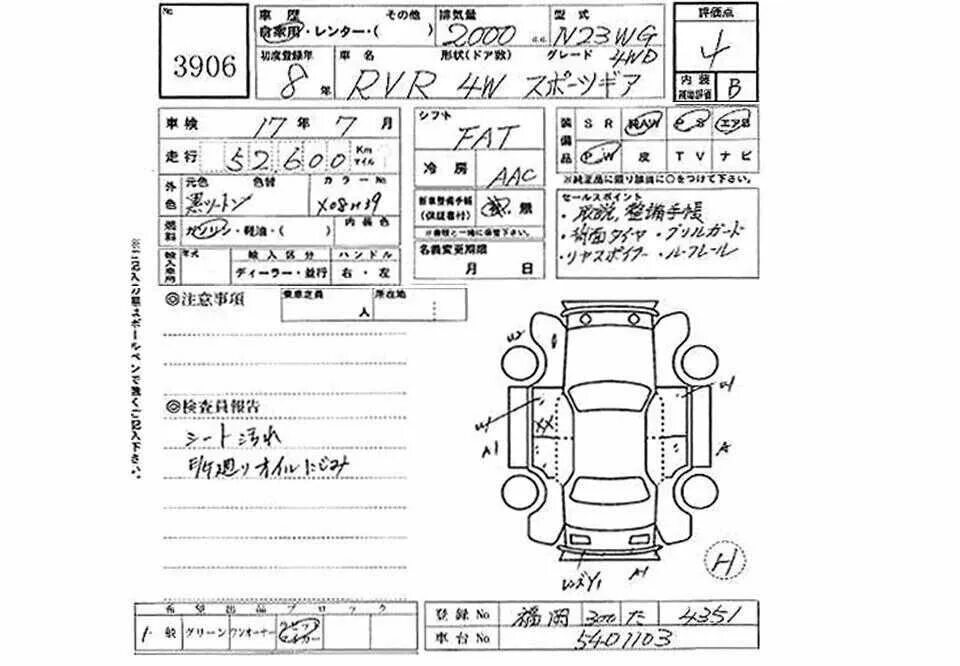 No
3906
車歴 その他
自家用・レンター・( )
排気量
2000 c.c.
型式
N23WG
4WD
評価点
4
内装
補助評価 B
初度登録年
8年
車名 形状(ドア数) グレード
RVR 4W スポーツギア
車検 17年 7月
走行 52,600 Km マイル
外色 元色 色替 カラーNo
黒ツートン X08H39
燃料 ガソリン・軽油・( ) 内装色
輸入車用 年式 輸入区分 ハンドル
ディーラー・並行 右・左
シフト
FAT
冷房 AAC
新車整備手帳
(保証書付) 有 無
※書類と一緒に保管下さい。
名義変更期限
月 日
装備品 SR 純AW PS エアB
PW 皮 TV ナビ
※純正品に限り該当に○をつけて下さい。
セールスポイント
・取説, 整備手帳
・背面タイヤ・グリルガード
・リヤスポイラー・ルーフレール
※に記入の際はボールペンで強くご記入下さい。
◎注意事項
乗車定員 人 所在地
◎検査員報告
シート汚れ
E/G廻りオイルにじみ
U2
A1
A
レンズY1
A1
H
希望出品ブロック
一般 グリーン ワンオーナー
登録No 福岡 300 た 4351
車台No 5401103